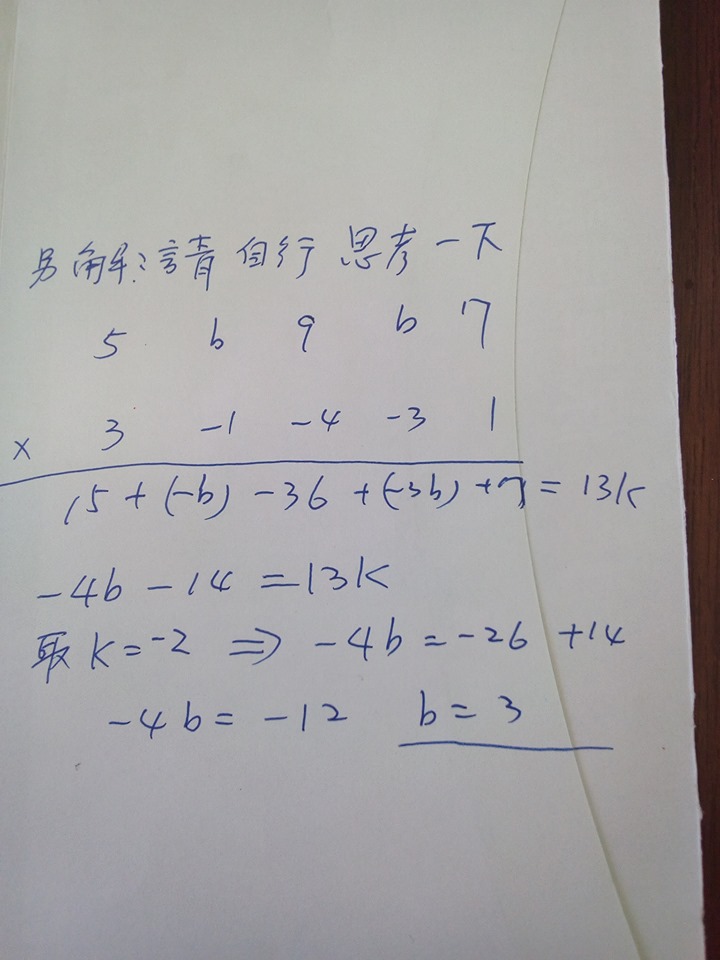 另解:請自行思考一下
5 b 9 b 7
× 3 -1 -4 -3 1
15 + (-b) - 36 + (-3b) + 7 = 13k
-4b - 14 = 13k
取 k = -2 ⇒ -4b = -26 + 14
-4b = -12 b = 3